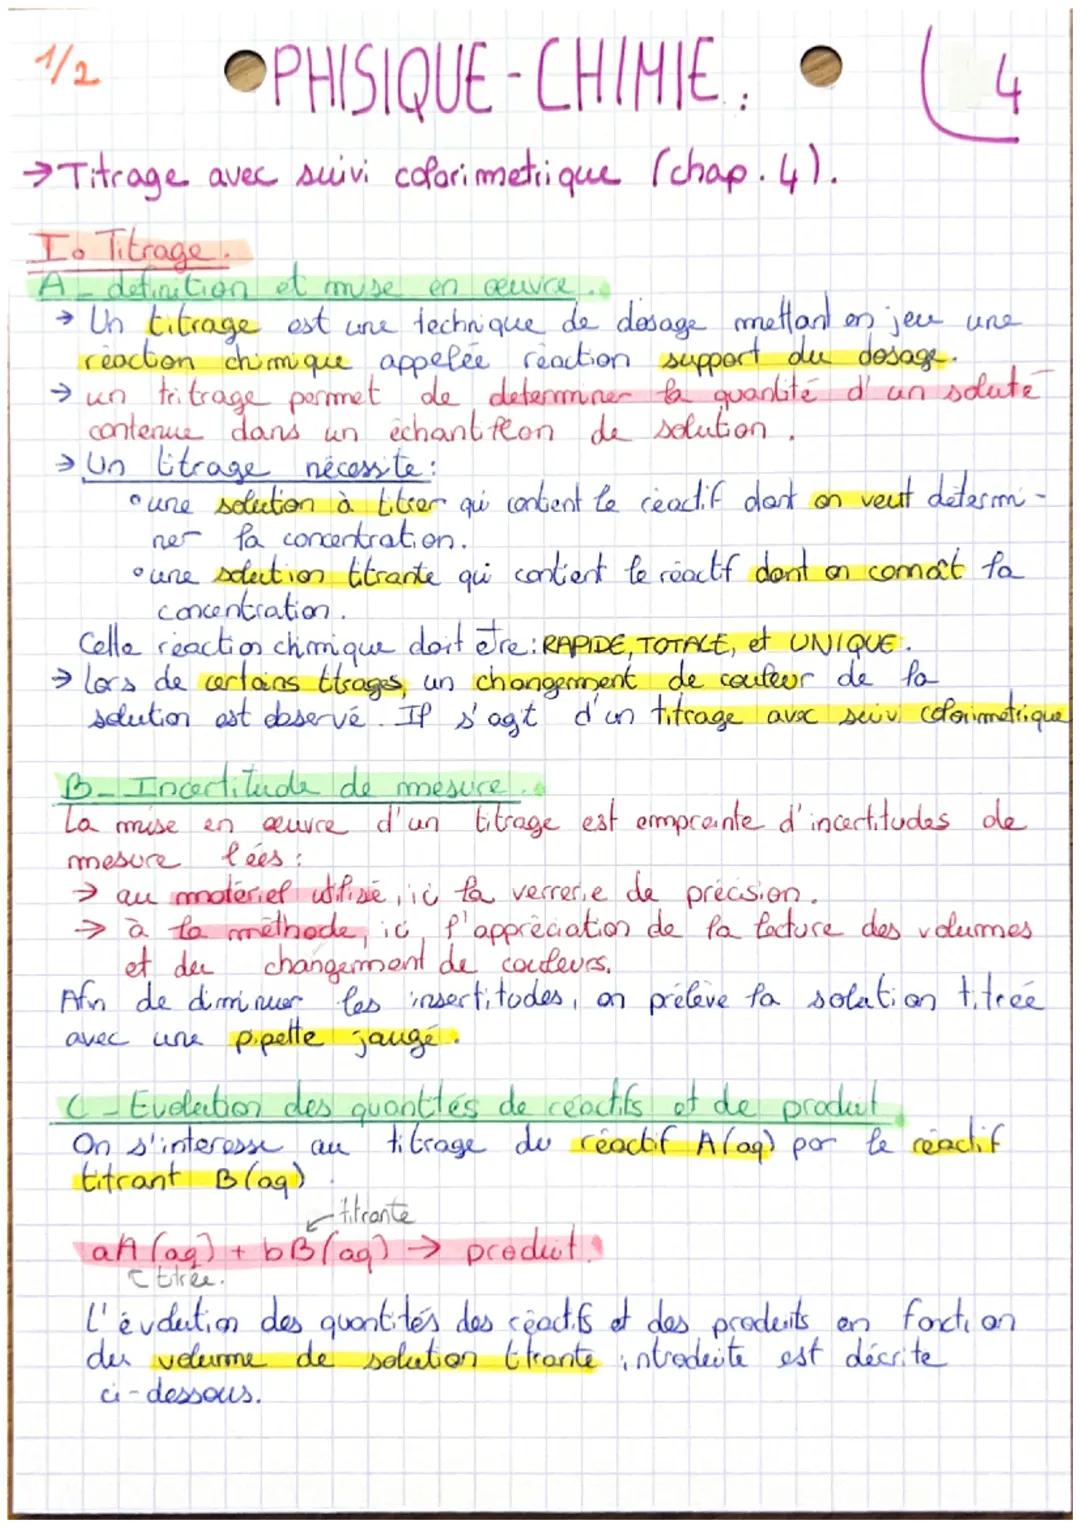 1/2
PHISIQUE-CHIMIE.
4
→ Titrage avec suivi colorimetrique (chap. 4).
I. Titrage.
A - definition et mise en œuvre.
→ Un titrage est une technique de dosage mettant en jeu une
réaction chimique appelée réaction support du dosage.
→ un tritrage permet de determiner la quantité d'un soluté
contenue dans un échantillon de solution.
→ Un titrage nécessite :
• une solution à titrer qui contient le réactif dont on veut détermi-
ner la concentration.
• une solution titrante qui contient le réactif dont on connaît la
concentration.
Cette réaction chimique doit être : RAPIDE, TOTALE, et UNIQUE.
→ lors de certains titrages, un changement de couleur de la
solution est observé. Il s'agit d'un titrage avec suivi colorimétrique
B - Incertitude de mesure.
La mise en œuvre d'un titrage est empreinte d'incertitudes de
mesure liées :
→ au matériel utilisé, ici la verrerie de précision.
→ à la méthode, ici, l'appréciation de la lecture des volumes
et du changement de couleurs.
Afin de diminuer les insertitudes, on prélève la solution titrée
avec une pipette jaugé.
C - Evolution des quantités de réactifs et de produit
On s'interesse au titrage du réactif A(aq) par le réactif
titrant B(aq)
titrante
aA (aq) + bB (aq) → produit.
titrée.
L'évolution des quantités des réactifs et des produits en fonction
du volume de solution titrante introduite est décrite
ci-dessous.